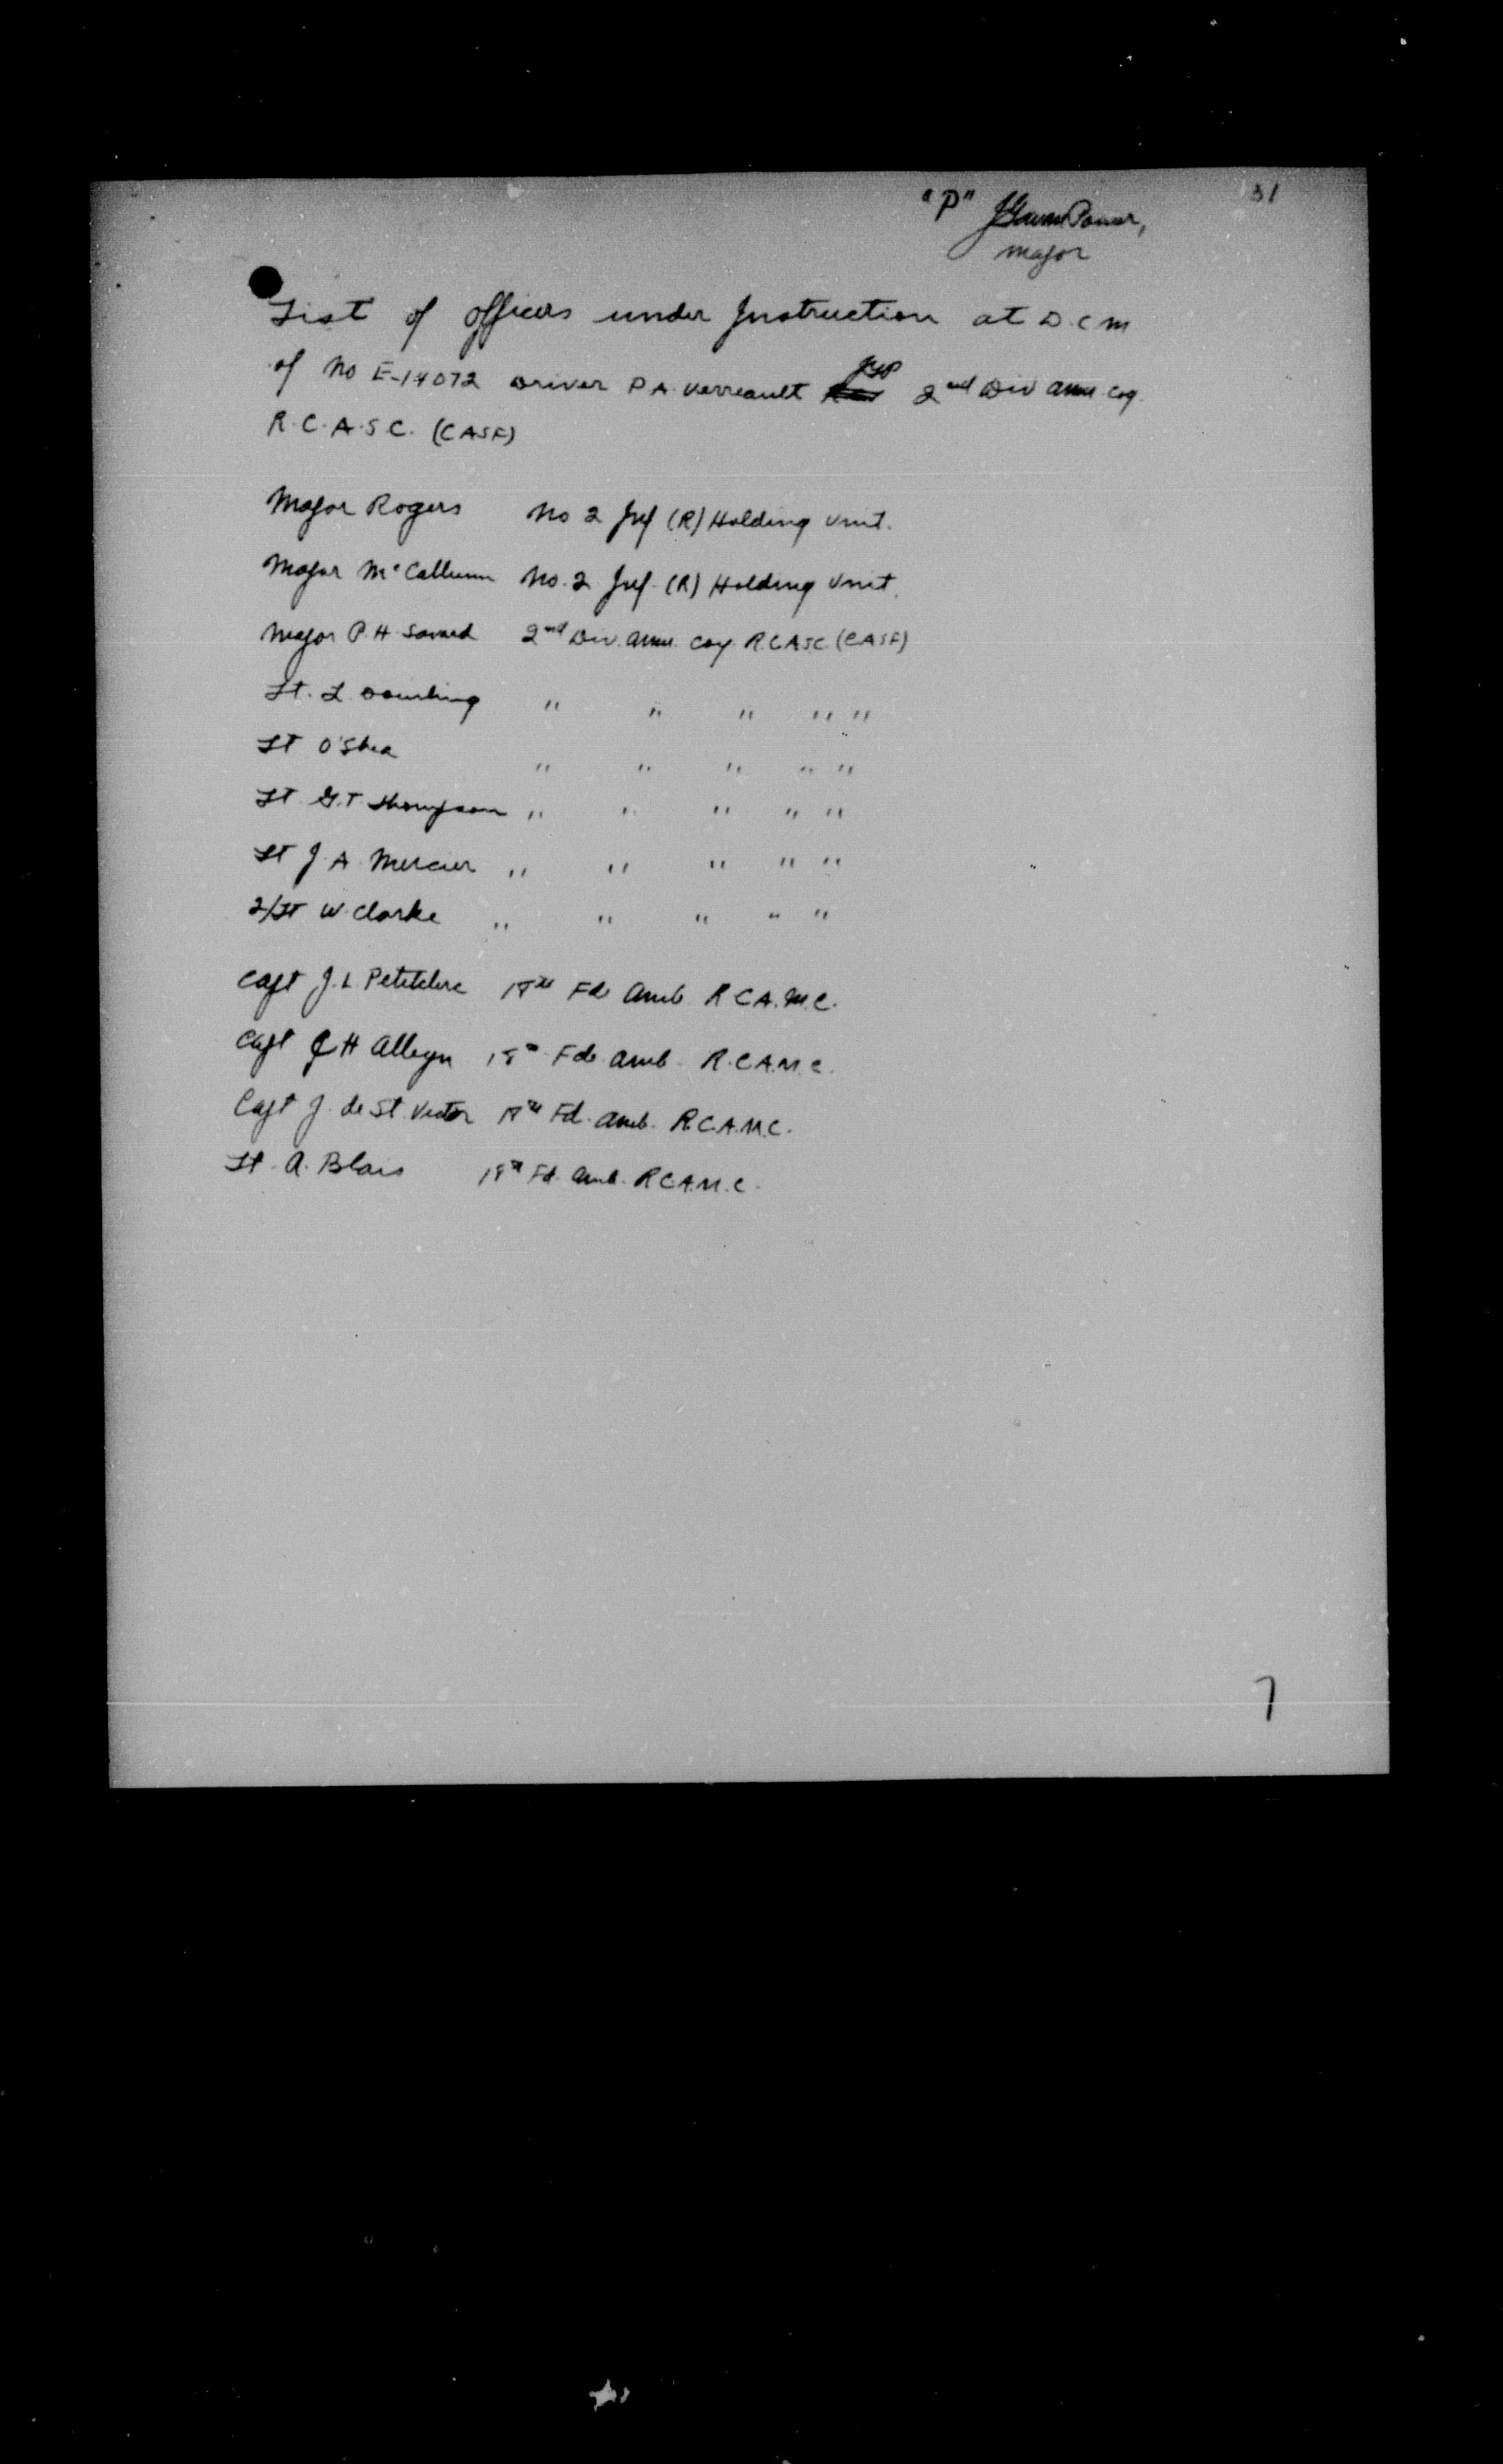 "P" Power,
31
Major
List of officers under Instruction at D C M
of No E-14072 Driver P A Verreault 2nd Div Amm Coy.
R.C.A.S.C. (CASF)
Major Rogers No 2 Inf (R) Holding Unit.
Major McCallum No. 2 Inf. (R) Holding Unit.
Major P. H. Savard 2nd Div. Amm. Coy R.C.A.S.C. (CASF)
Lt. L. " " " " "
Lt O'Shea " " " " "
Lt G. T. Thompson " " " " "
Lt J. A. Mercier " " " " "
2/Lt W. Clarke " " " " "
Capt J. L. Petitclerc 18th Fd Amb R C A.M.C.
Capt J H Alleyn 18th Fd Amb R.C.A.M.C.
Capt J. de St. Victor 18th Fd. Amb. R.C.A.M.C.
Lt. A. Blais 18th Fd. Amb. R.C.A.M.C.
7